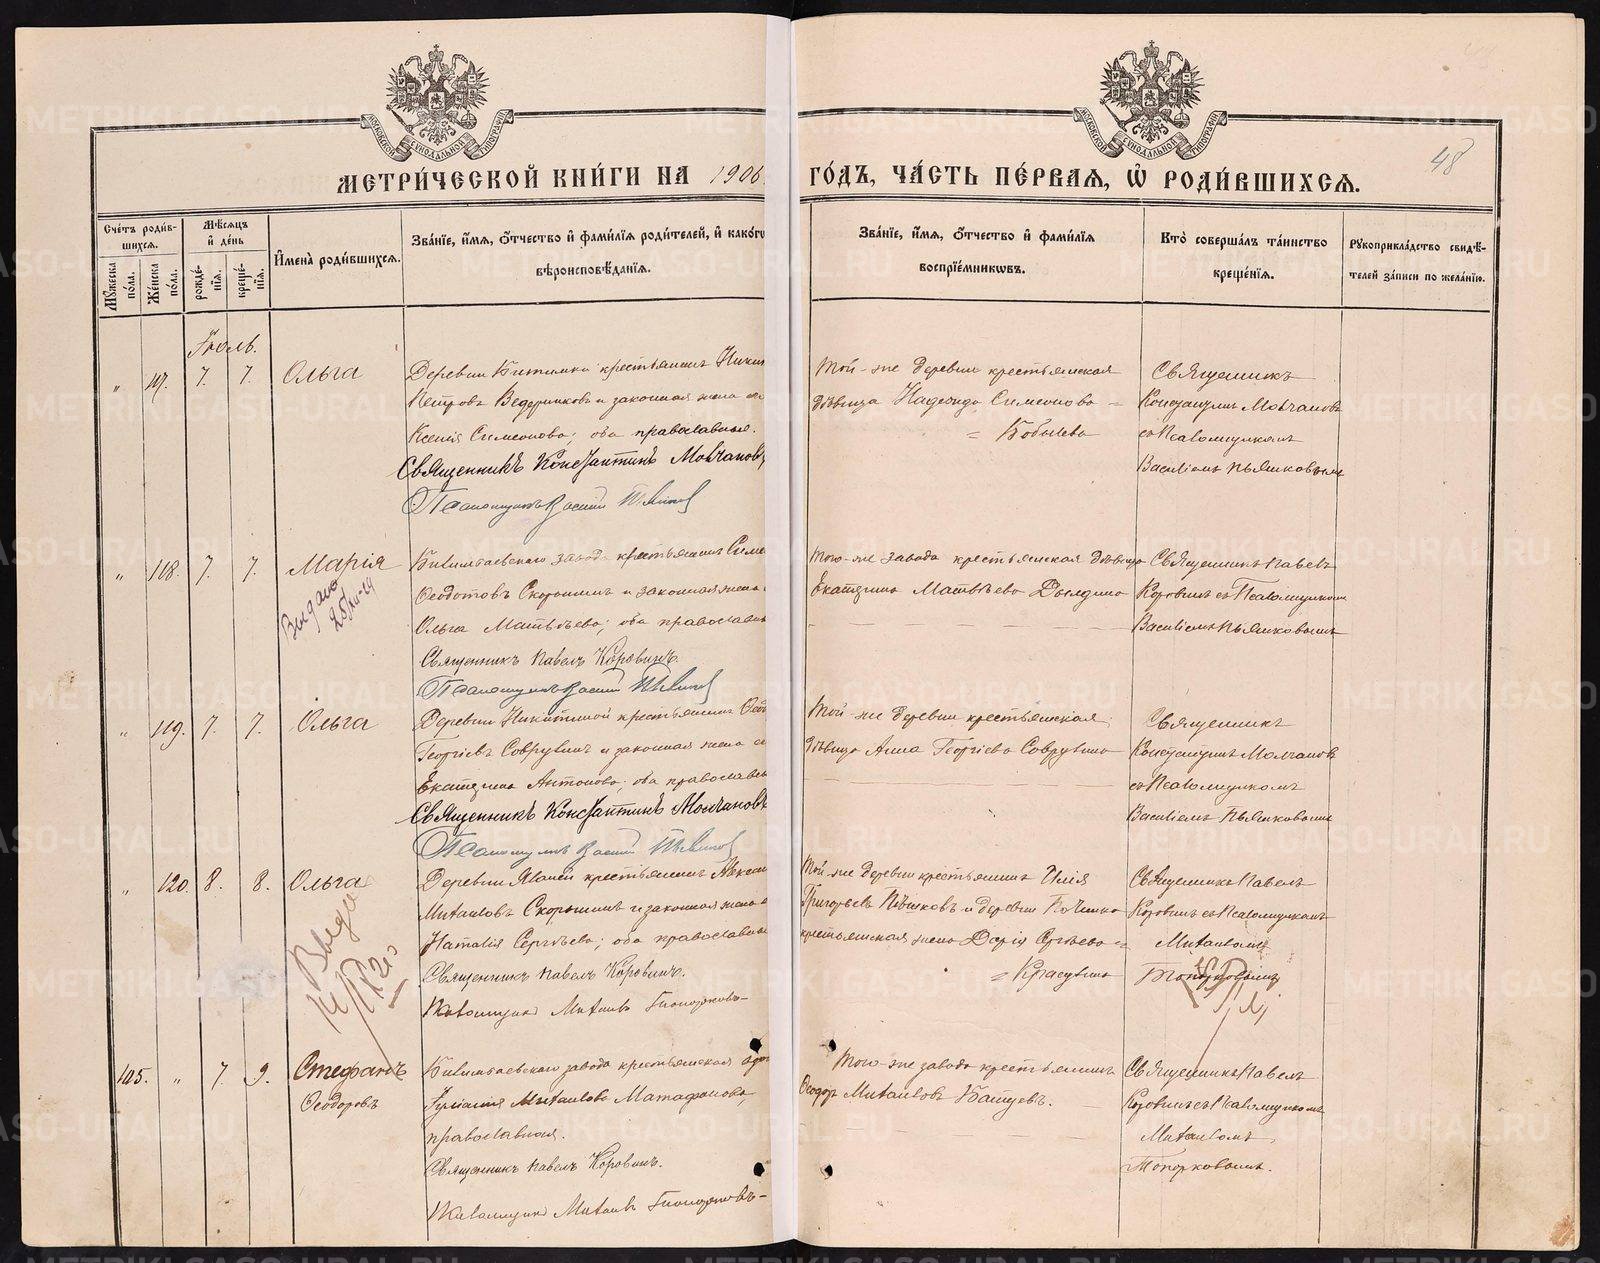 МЕТРИ́ЧЕСКОЙ КНИ́ГИ НА 1906
ГО́ДЪ, ЧА́СТЬ ПЕ́РВАЯ, Ѡ҆ РОДИ́ВШИХСЯ.
48
МОСКОВСКОЙ СѴНОДАЛЬНОЙ ТИПОГРАФІИ
МОСКОВСКОЙ СѴНОДАЛЬНОЙ ТИПОГРАФІИ
Сче́тъ роди́в-
шихся.
Мужеска по́ла.
Же́нска по́ла.
Мѣ́сяцъ
и҆ де́нь
рожде́-
нїя.
креще́-
нїя.
И҆мена̀ роди́вшихся.
Зва́нїе, и҆́мя, о҆́тчество и҆ фами́лїя роди́телей, и҆ како́гѡ
вѣроисповѣ́данїя.
Зва́нїе, и҆́мя, о҆́тчество и҆ фами́лїя
воспрїе́мникѡвъ.
Кто̀ соверша́лъ та́инство
креще́нїя.
Рукоприкла́дство свидѣ́-
телей за́писи по жела́нїю.
Іюль.
" 117. 7. 7. Ольга
Деревни Битимки крестьянинъ Никит
Петровъ Ведерниковъ и законная жена его
Ксенія Симеонова; оба православные.
Священникъ Константинъ Молчановъ
Псаломщикъ Василій
Той-же деревни крестьянская
дѣвица Надежда Симеонова =
= Бобылева
Священникъ
Константинъ Молчановъ
съ Псаломщикомъ
Василіемъ Пьянковымъ
" 118. 7. 7. Марія
Выдано
Билимбаевскаго завода крестьянинъ Симе
Ѳеодотовъ Скорынинъ и законная жена
Ольга Матвѣева; оба православн
Священникъ Павелъ Коровинъ.
Псаломщикъ Василій
Того-же завода крестьянская дѣвица
Екатерина Матвѣева Дылдина
Священникъ Павелъ
Коровинъ съ Псаломщикомъ
Василіемъ Пьянковымъ
" 119. 7. 7. Ольга
Деревни Никитиной крестьянинъ Ѳеод
Георгіевъ Соврулинъ и законная жена ег
Екатерина Антонова; оба православн
Священникъ Константинъ Молчановъ
Псаломщикъ Василій
Той-же деревни крестьянская
дѣвица Анна Георгіева Соврулина
Священникъ
Константинъ Молчановъ
съ Псаломщикомъ
Василіемъ Пьянковымъ
" 120. 8. 8. Ольга
Деревни крестьянинъ Алексан
Михаиловъ Скорынинъ и законная жена
Наталія Сергѣева; оба православны
Священникъ Павелъ Коровинъ.
Псаломщикъ Михаилъ Топорковъ
Той-же деревни крестьянинъ Илія
Григорьевъ и деревни
крестьянская жена Дарія Сергѣева =
= Красулина
Священникъ Павелъ
Коровинъ съ Псаломщикомъ
Михаиломъ
Топорковымъ
105. " 7. 9. Стефанъ
Ѳеодоровъ
Билимбаевскаго завода крестьянская
Іуліанія Михаилова Матафонова,
православная.
Священникъ Павелъ Коровинъ.
Псаломщикъ Михаилъ Топорковъ
Того-же завода крестьянинъ
Ѳеодоръ Михаиловъ
Священникъ Павелъ
Коровинъ съ Псаломщикомъ
Михаиломъ
Топорковымъ.
METRIKI.GASO-URAL.RU